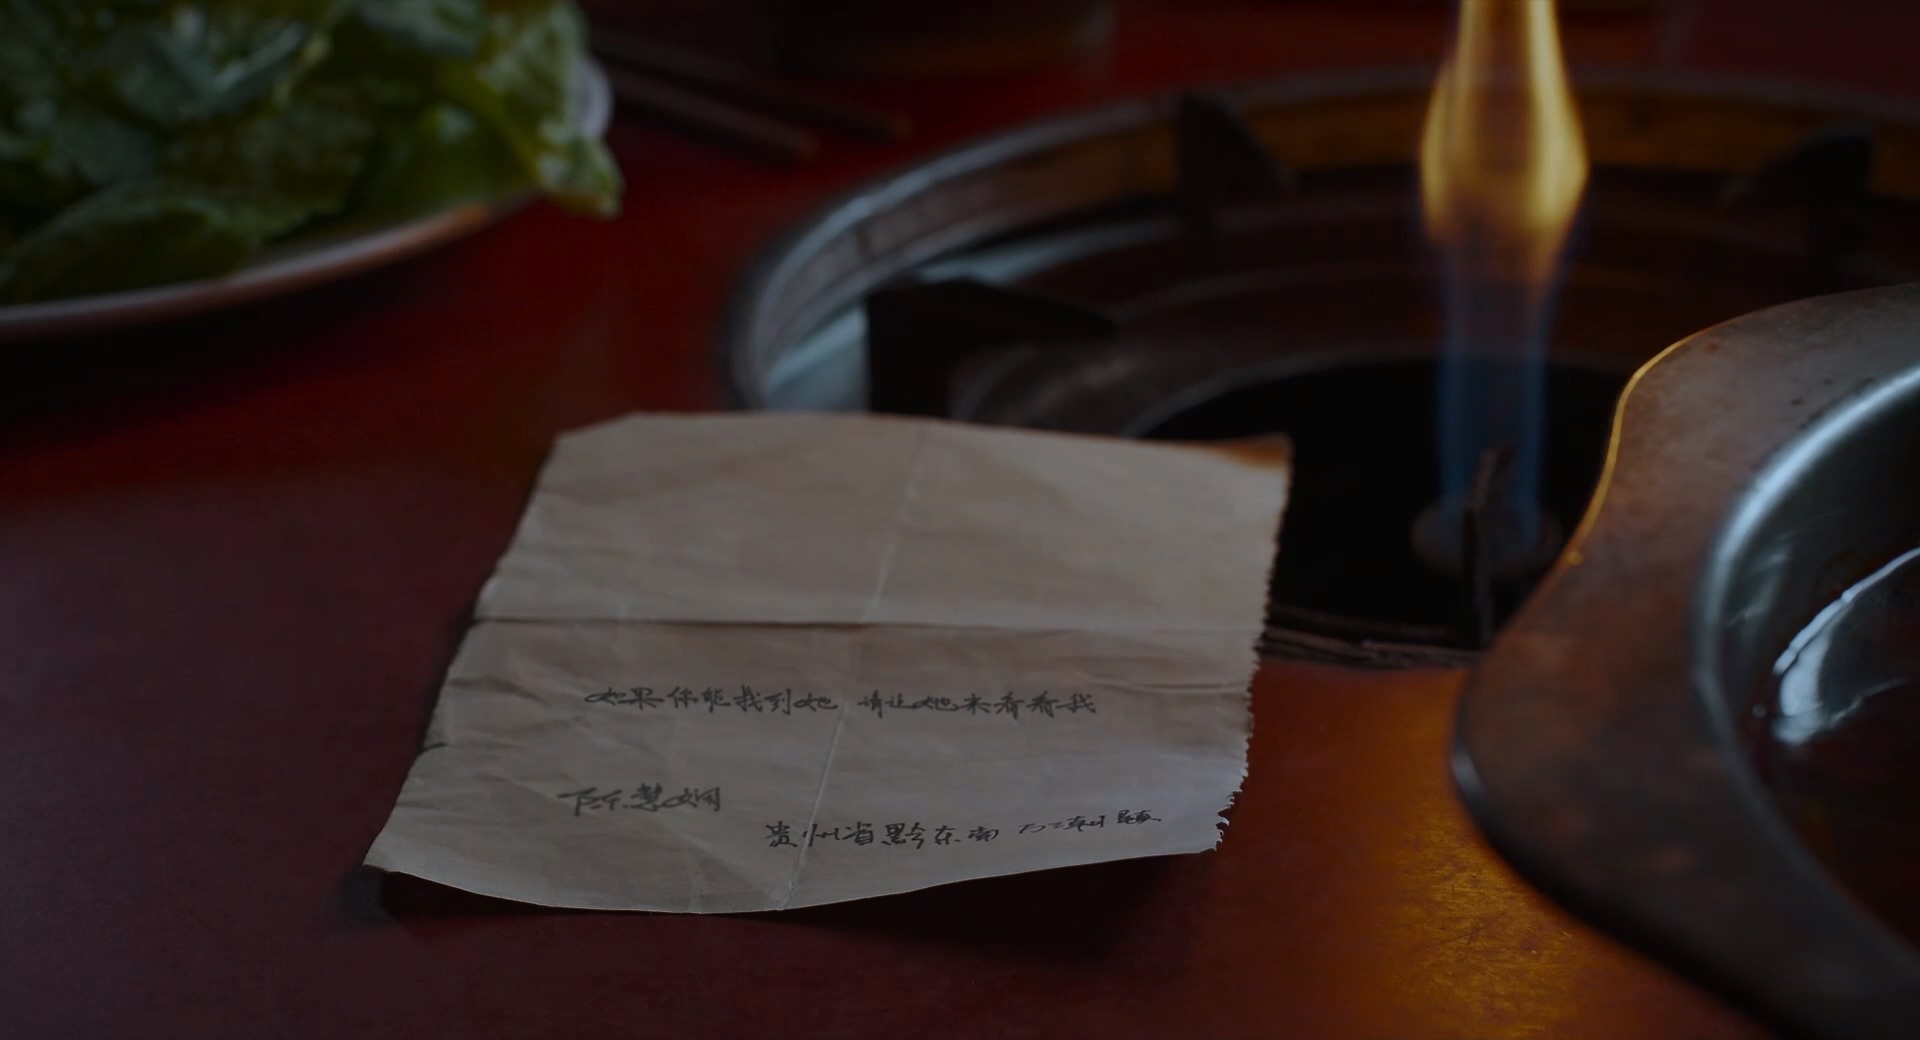 如果你能找到她 请让她来看看我
陈慧娴
贵州省黔东南